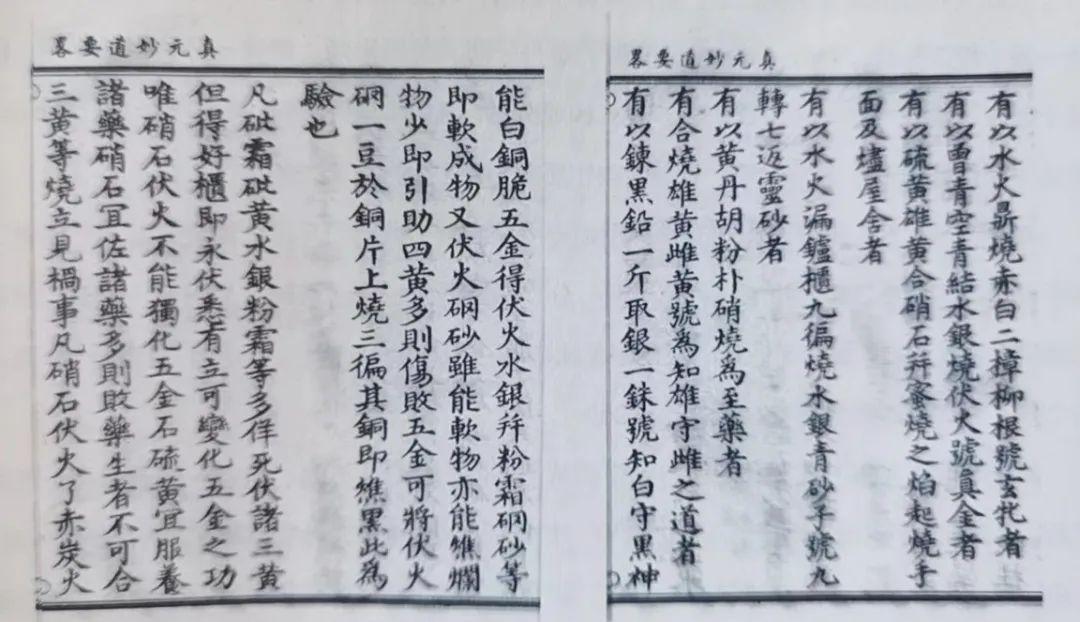 真元妙道要畧
有以水火鼎燒赤白二樟柳根號玄牝者
有以曾青空青結水銀燒伏火號真金者
有以硫黃雄黃合硝石并蜜燒之焰起燒手
面及燼屋舍者
有以水火漏鑪櫃九徧燒水銀青砂子號九
轉七返靈砂者
有以黃丹胡粉朴硝燒爲至藥者
有合燒雄黃雌黃號爲知雄守雌之道者
有以鍊黑鉛一斤取銀一銖號知白守黑神
真元妙道要畧
能白銅脆五金得伏火水銀并粉霜硇砂等
即軟成物又伏火硇砂雖能軟物亦能燋爛
物少即引助四黃多則傷敗五金可將伏火
硇一豆於銅片上燒三徧其銅即燋黑此爲
驗也
凡砒霜砒黃水銀粉霜等多佯死伏諸三黃
但得好櫃即永伏悉有立可變化五金之功
唯硝石伏火不能獨化五金石硫黃宜服養
諸藥硝石宜佐諸藥多則敗藥生者不可合
三黃等燒立見禍事凡硝石伏火了赤炭火